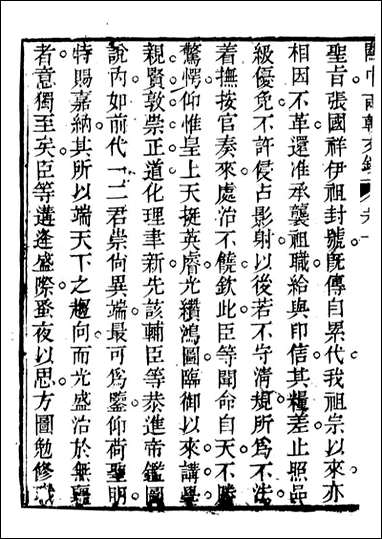 關中兩朝文鈔
聖旨張國祥伊祖封號旣傳自累代我祖宗以來亦
相因不革還准承襲祖職給與印信其糧差止照品
級優免不許侵占影射以後若不守清規所爲不法
着撫按官奏來處治不饒欽此臣等聞命自天不勝
驚愕仰惟皇上天挺英睿光纘鴻圖臨御以來講學
親賢敦崇正道化理聿新先該輔臣等恭進帝鑑圖
說内如前代一二君崇尚異端最可爲鑒仰荷聖明
特賜嘉納其所以端天下之趨向而光盛治於無疆
者意獨至矣臣等遘逢盛際蚤夜以思方圖勉修